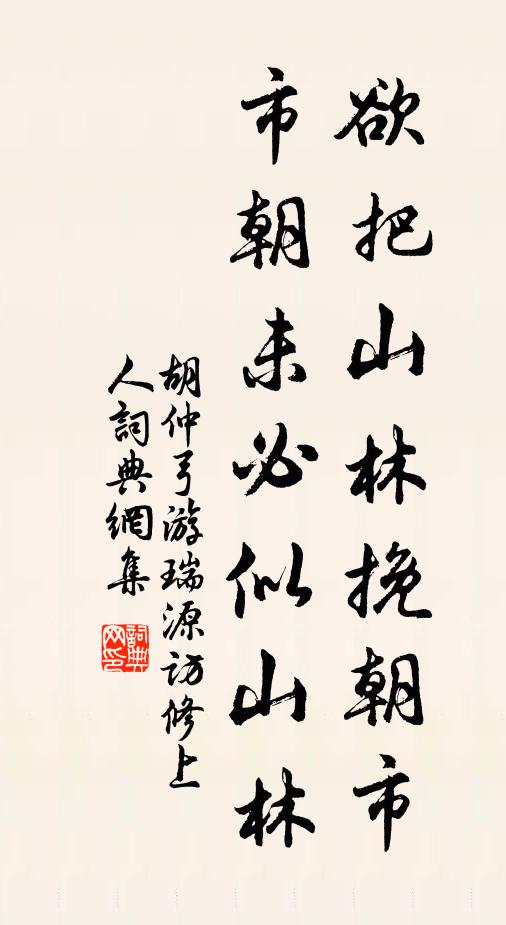 欲把山林挽朝市
市朝未必似山林
胡仲弓游瑞源访修上
人詞典網集
詞典網印